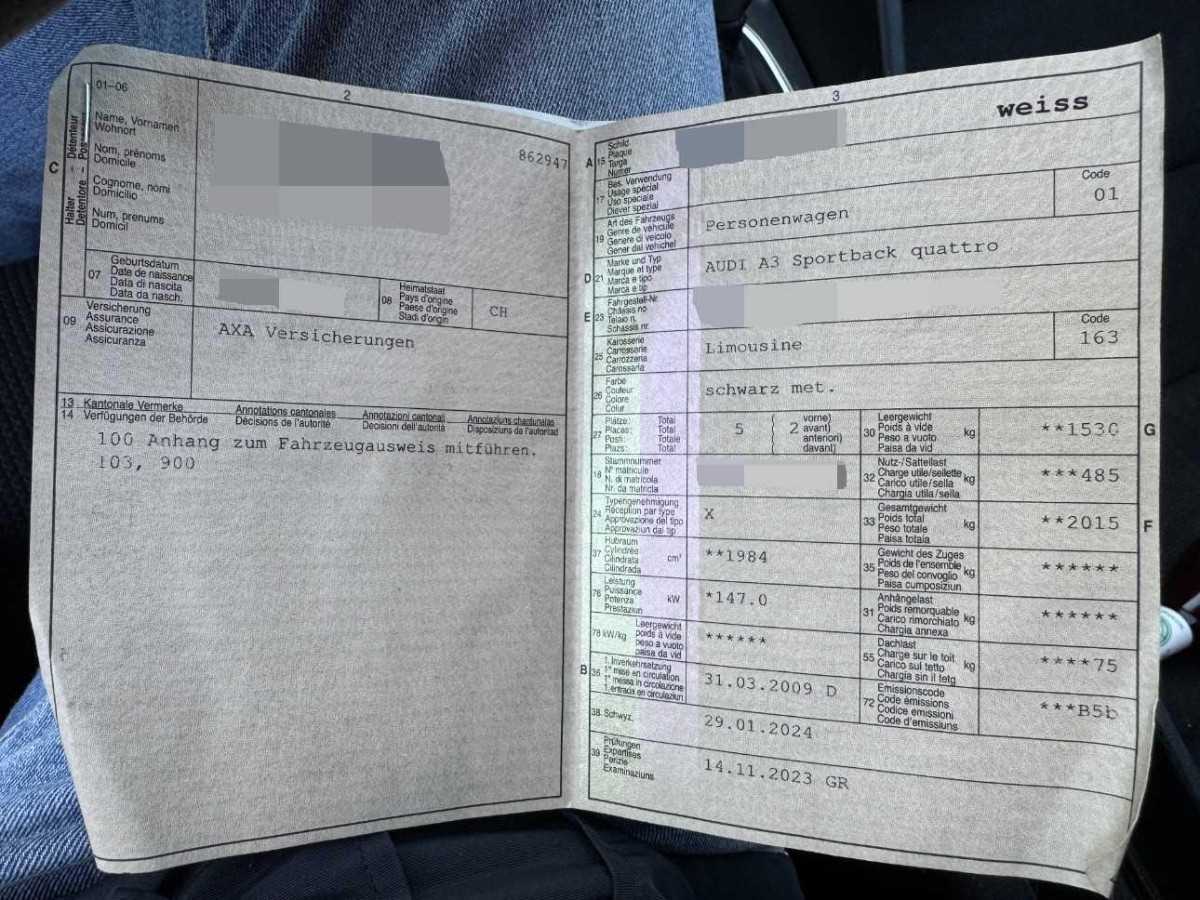 01-06
2
C
Halter Détenteur
Detentore Possessur
Name, Vornamen
Wohnort
Nom, prénoms
Domicile
Cognome, nomi
Domicilio
Num, prenums
Domicil
862947
07
Geburtsdatum
Date de naissance
Data di nascita
Data da nasch.
08
Heimatstaat
Pays d'origine
Paese d'origine
Stadi d'origin
CH
09
Versicherung
Assurance
Assicurazione
Assicuranza
AXA Versicherungen
13 Kantonale Vermerke Annotations cantonales Annotazioni cantonali Annotaziuns chantunalas
14 Verfügungen der Behörde Décisions de l'autorité Decisioni dell'autorità Disposiziuns da l'autoritad
100 Anhang zum Fahrzeugausweis mitführen.
103, 900
3
weiss
A 15
Schild
Plaque
Targa
Numer
17
Bes. Verwendung
Usage spécial
Uso speciale
Diever spezial
Code
01
19
Art des Fahrzeugs
Genre de véhicule
Genere di veicolo
Gener dal vehichel
Personenwagen
D 21
Marke und Typ
Marque et type
Marca e tipo
Marca e tip
AUDI A3 Sportback quattro
E 23
Fahrgestell-Nr.
Châssis no
Telaio n.
Schassis nr.
25
Karosserie
Carrosserie
Carrozzeria
Carossaria
Limousine
Code
163
26
Farbe
Couleur
Colore
Colur
schwarz met.
27
Plätze: Total
Places: Total
Posti: Totale
Plazs: Total
5 ( 2 vorne)
avant)
anteriori)
davant)
30
Leergewicht
Poids à vide
Peso a vuoto
Paisa da vid
kg
**1530
G
18
Stammnummer
N° matricule
N. di matricola
Nr. da matricla
32
Nutz-/Sattellast
Charge utile/sellette
Carico utile/sella
Chargia utila/sella
kg
***485
24
Typengenehmigung
Réception par type
Approvazione del tipo
Approvaziun dal tip
X
33
Gesamtgewicht
Poids total
Peso totale
Paisa totala
kg
**2015
F
37
Hubraum
Cylindrée
Cilindrata
Cilindrada
cm³
**1984
35
Gewicht des Zuges
Poids de l'ensemble
Peso del convoglio
Paisa cumposiziun
kg
******
76
Leistung
Puissance
Potenza
Prestaziun
kW
*147.0
31
Anhängelast
Poids remorquable
Carico rimorchiato
Chargia annexa
kg
******
78 kW/kg
Leergewicht
poids à vide
peso a vuoto
paisa da vid
******
55
Dachlast
Charge sur le toit
Carico sul tetto
Chargia sin il tetg
kg
****75
B 36
1. Inverkehrsetzung
1re mise en circulation
1a messa in circolazione
1. entrada en circulaziun
31.03.2009 D
72
Emissionscode
Code émissions
Codice emissioni
Code d'emissiuns
***B5b
38. Schwyz,
29.01.2024
39
Prüfungen
Expertises
Perizie
Examinaziuns
14.11.2023 GR